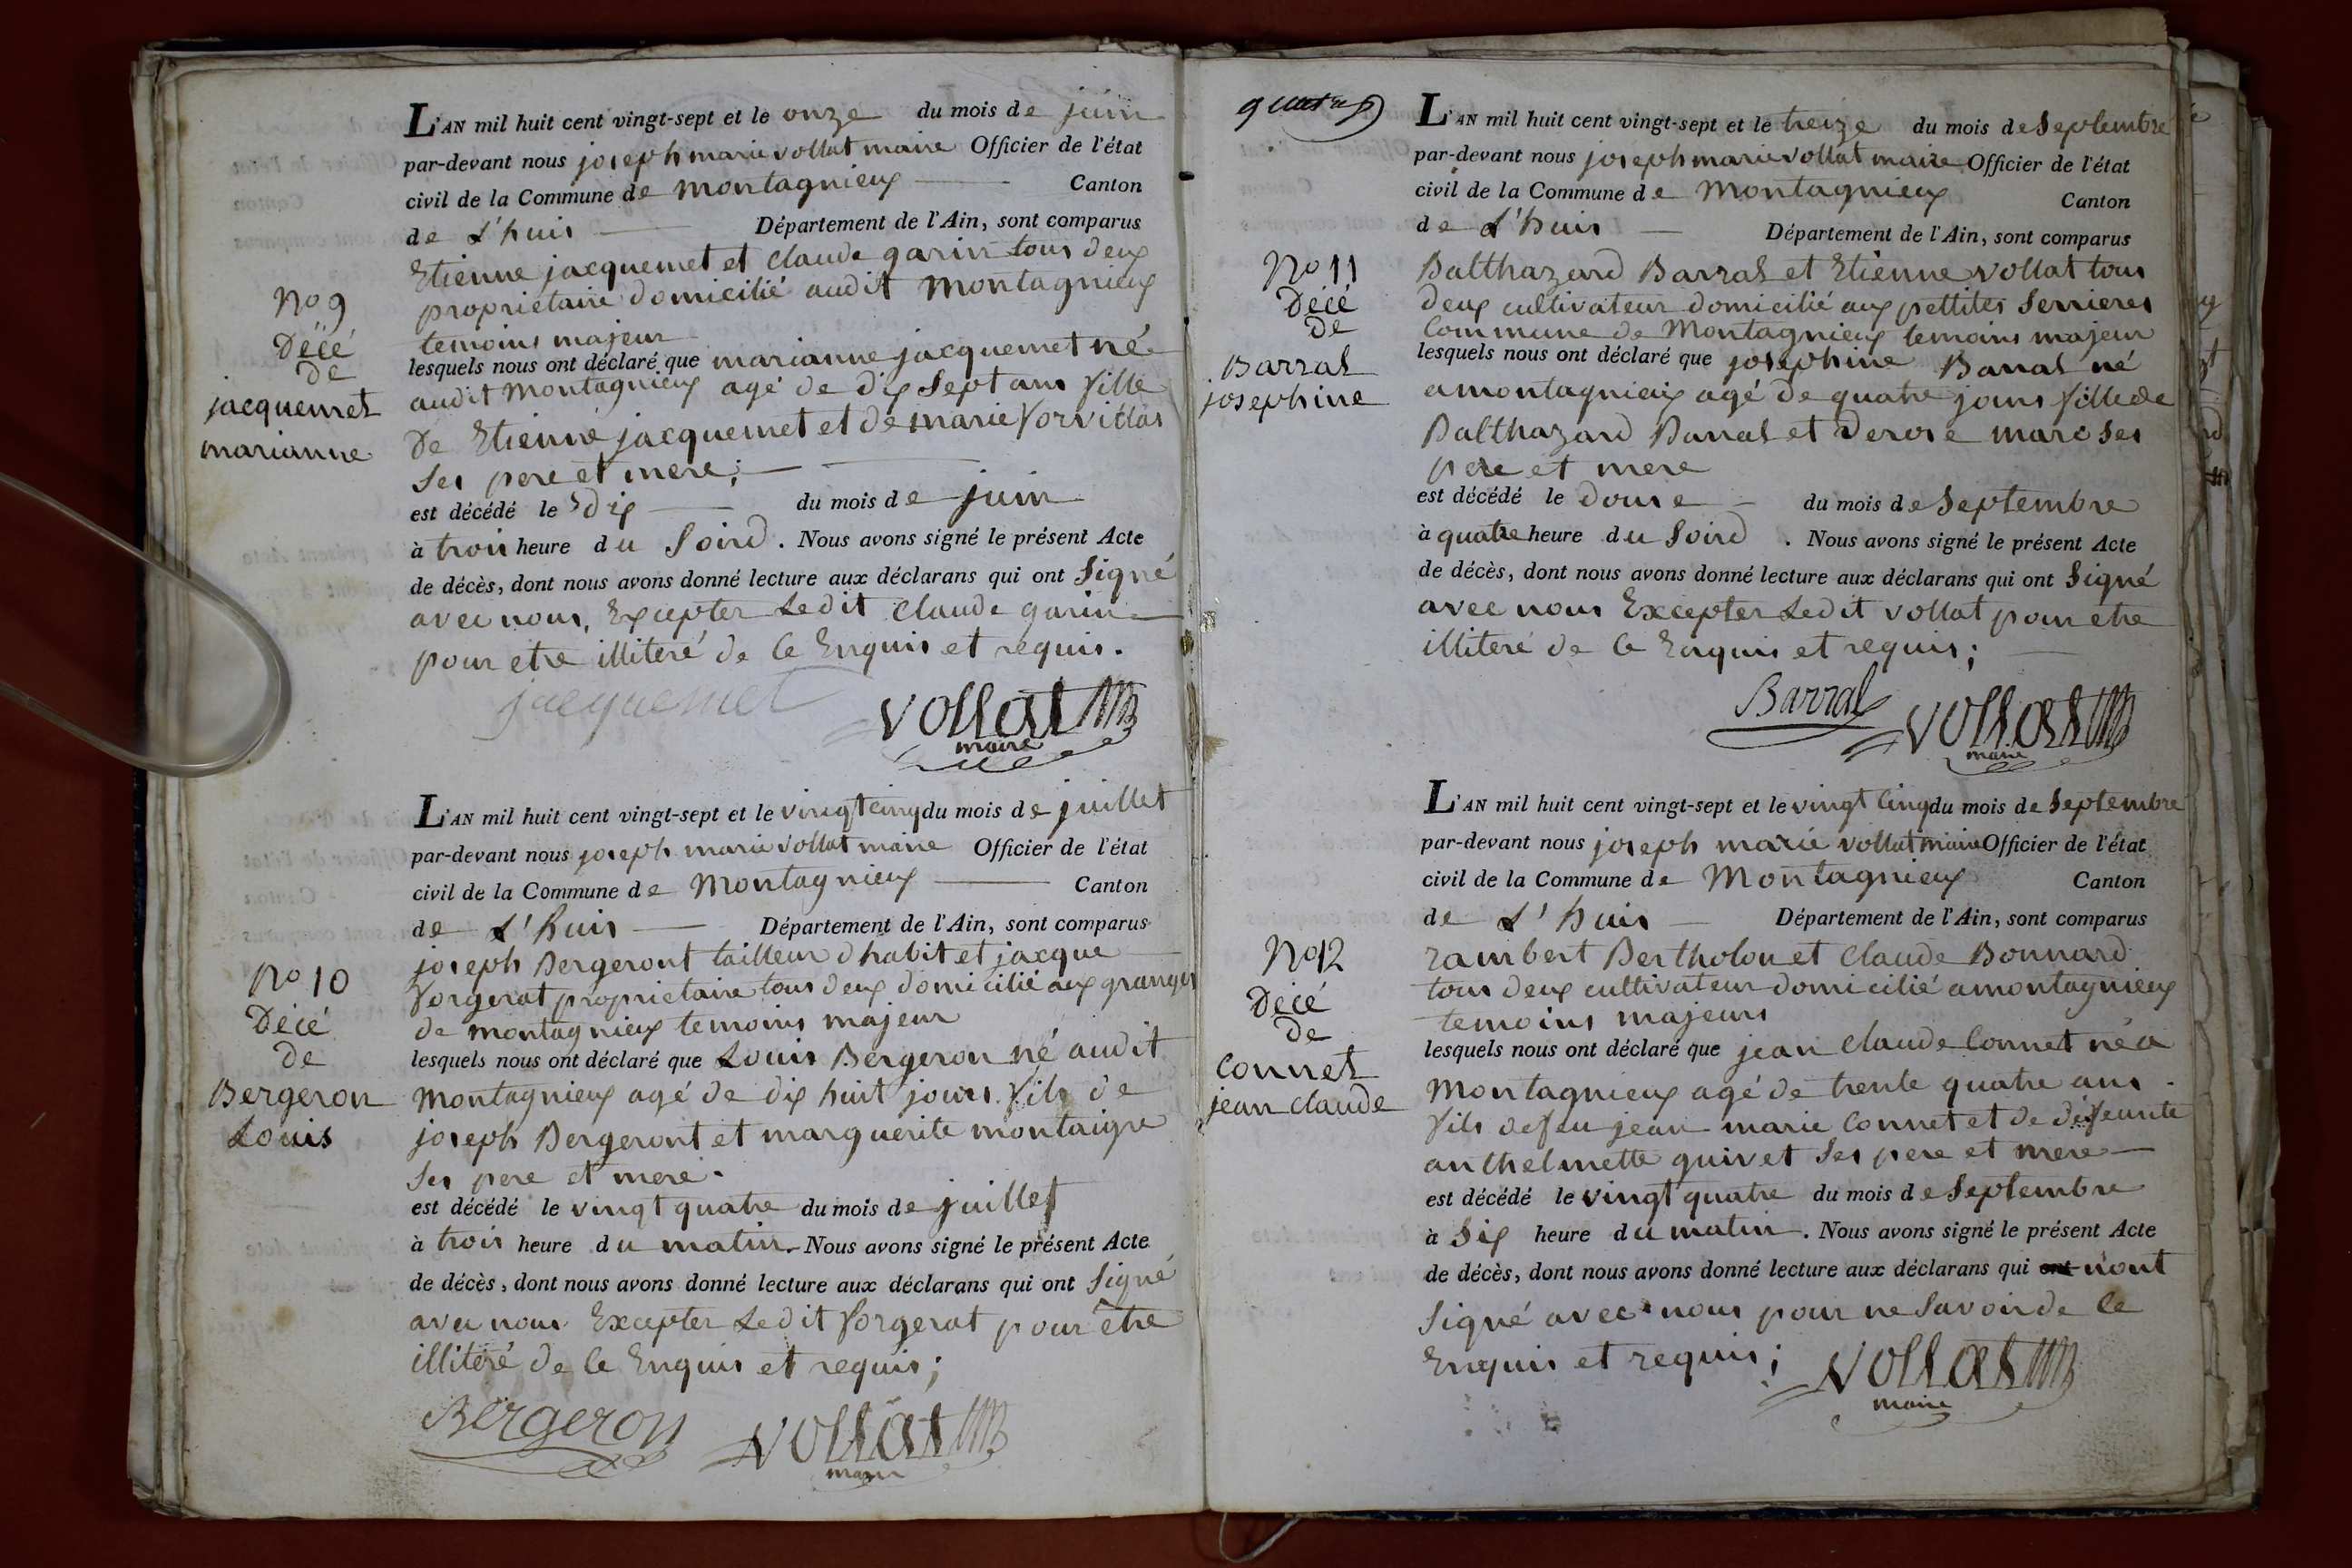 L'AN mil huit cent vingt-sept et le onze du mois de juin
par-devant nous joseph marie vollat maire Officier de l'état
civil de la Commune de Montagnieux Canton
de L'huis Département de l'Ain, sont comparus
Etienne jacquemet et claude garin tous deux
propriétaire domicilié audit Montagnieux
temoins majeur
lesquels nous ont déclaré que marianne jacquemet né
audit Montagnieux agé de dix Sept ans fille
De Etienne jacquemet et de marie Vorvillas
Ses pere et mere;
est décédé le dix du mois de juin
à trois heure du Soird. Nous avons signé le présent Acte
de décès, dont nous avons donné lecture aux déclarans qui ont Signé
avec nous, Excepter Ledit claude garin
pour etre illiteré de Ce Enquis et requis.
No 9
Décé
de
jacquemet
marianne
jacquemet
vollat
maire
L'AN mil huit cent vingt-sept et le vingt cinq du mois de juillet
par-devant nous joseph marie vollat maire Officier de l'état
civil de la Commune de Montagnieux Canton
de L'huis Département de l'Ain, sont comparus
joseph Bergeront tailleur d habit et jacque
Vorgerat propriétaire tous deux domicilié aux granges
de montagnieux temoins majeur
lesquels nous ont déclaré que Louis Bergeron né audit
Montagnieux agé de dix huit jours fils de
joseph Bergeront et marguerite montaigre
Ses pere et mere.
est décédé le vingt quatre du mois de juillet
à trois heure du matin. Nous avons signé le présent Acte
de décès, dont nous avons donné lecture aux déclarans qui ont Signé
avec nous Excepter Ledit Vorgerat pour être
illiteré de Ce Enquis et requis;
No 10
Décé
de
Bergeron
Louis
Bergeron
vollat
maire
quatre
L'AN mil huit cent vingt-sept et le treize du mois de Septembre
par-devant nous joseph marie vollat maire Officier de l'état
civil de la Commune de Montagnieux Canton
de L'huis Département de l'Ain, sont comparus
Balthazard Barral et Etienne vollat tous
deux cultivateur domicilié aux pettites Serrieres
Commune de Montagnieux temoins majeur
lesquels nous ont déclaré que josephine Barral né
a montagnieux agé de quatre jours fille de
Balthazard Barral et derose marc Ses
pere et mere
est décédé le douse du mois de Septembre
à quatre heure du Soird. Nous avons signé le présent Acte
de décès, dont nous avons donné lecture aux déclarans qui ont Signé
avec nous Excepter Ledit vollat pour etre
illiteré de Ce Enquis et requis;
No 11
Décé
de
Barral
josephine
Barral
vollat
maire
L'AN mil huit cent vingt-sept et le vingt Cinq du mois de Septembre
par-devant nous joseph marie vollat maire Officier de l'état
civil de la Commune de Montagnieux Canton
de L'huis Département de l'Ain, sont comparus
rambert Bertholon et Claude Bonnard
tous deux cultivateur domicilié a montagnieux
temoins majeurs
lesquels nous ont déclaré que jean Claude Connet né a
Montagnieux agé de trente quatre ans
fils de feu jean marie Connet et de defeunte
anthelmette quivet Ses pere et mere
est décédé le vingt quatre du mois de Septembre
à Six heure du matin. Nous avons signé le présent Acte
de décès, dont nous avons donné lecture aux déclarans qui ont n'ont
Signé avec nous pour ne Savoir de Ce
Enquis et requis;
No 12
Décé
de
Connet
jean claude
vollat
maire